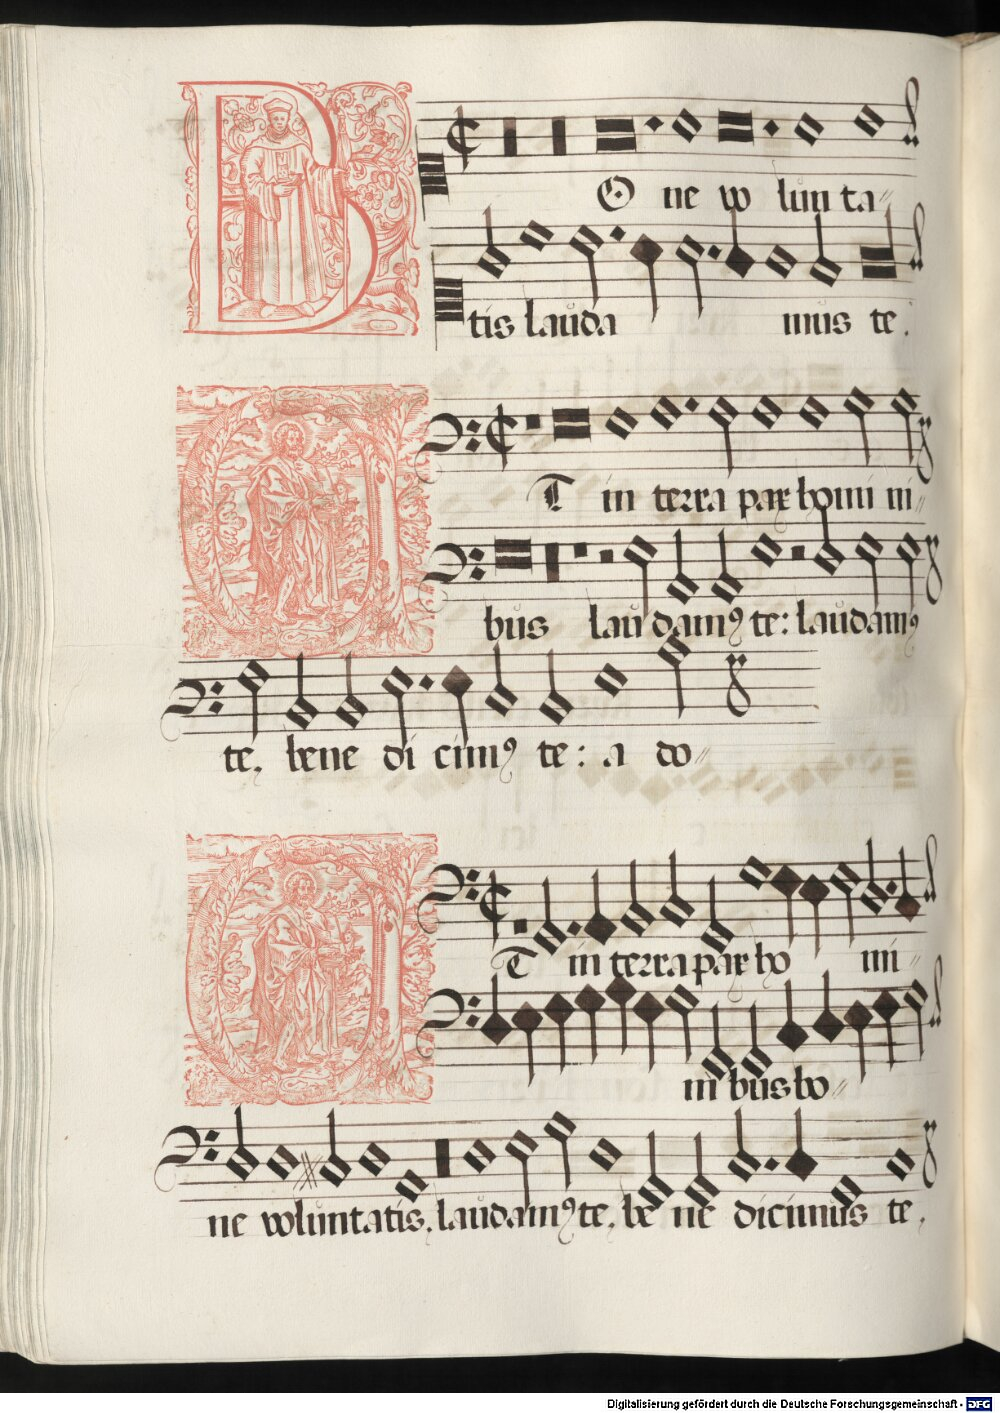 BOne volunta
tis lauda mus te.
ET in terra pax homi ni
bus laudamꝰ te: laudamꝰ
te, bene di cimꝰ te: a do
ET in terra pax ho mi
ni bus bo
ne voluntatis, laudamꝰ te, be ne dicimus te,
Digitalisierung gefördert durch die Deutsche Forschungsgemeinschaft - DFG